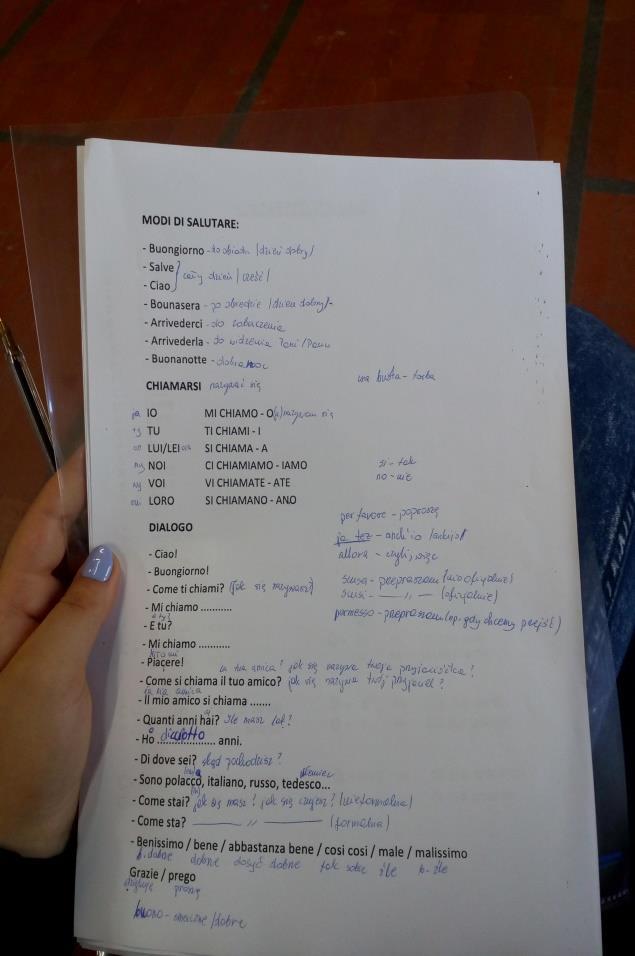 MODI DI SALUTARE:
- Buongiorno - do obiadu /dzień dobry/
- Salve
cały dzień /cześć/
- Ciao
- Bounasera - po obiedzie /dzień dobry/-
- Arrivederci - do zobaczenia
- Arrivederla - do widzenia Pani/Panu
- Buonanotte - dobranoc
CHIAMARSI nazywać się
una busta - torba
ja IO MI CHIAMO - O (a) nazywam się
ty TU TI CHIAMI - I
on LUI/LEI ona SI CHIAMA - A
my NOI CI CHIAMIAMO - IAMO
si - tak
wy VOI VI CHIAMATE - ATE
no - nie
oni LORO SI CHIAMANO - ANO
per favore - poproszę
DIALOGO
ja też - anch'io
- Ciao!
allora - czyli, więc
- Buongiorno!
- Come ti chiami? (jak się nazywasz?)
scusa - przepraszam (nieoficjalnie)
scusi - —— 〃 —— (oficjalnie)
- Mi chiamo ...........
permesso - przepraszam (np. gdy chcemy przejść)
a ty?
- E tu?
- Mi chiamo ...........
- Piacere!
la tua amica? jak się nazywa twoja przyjaciółka?
- Come si chiama il tuo amico? jak się nazywa twój przyjaciel?
la mia amica
- Il mio amico si chiama .......
- Quanti anni hai? Ile masz lat?
- Ho diciotto anni.
- Di dove sei? skąd pochodzisz?
Niemiec
- Sono polacco, italiano, russo, tedesco...
- Come stai? jak się masz? jak się czujesz? (nieformalna)
- Come sta? —— 〃 —— (formalna)
- Benissimo / bene / abbastanza bene / cosi cosi / male / malissimo
b. dobrze dobrze dosyć dobrze tak sobie źle b. źle
Grazie / prego
dziękuję proszę
buono - smaczne /dobre